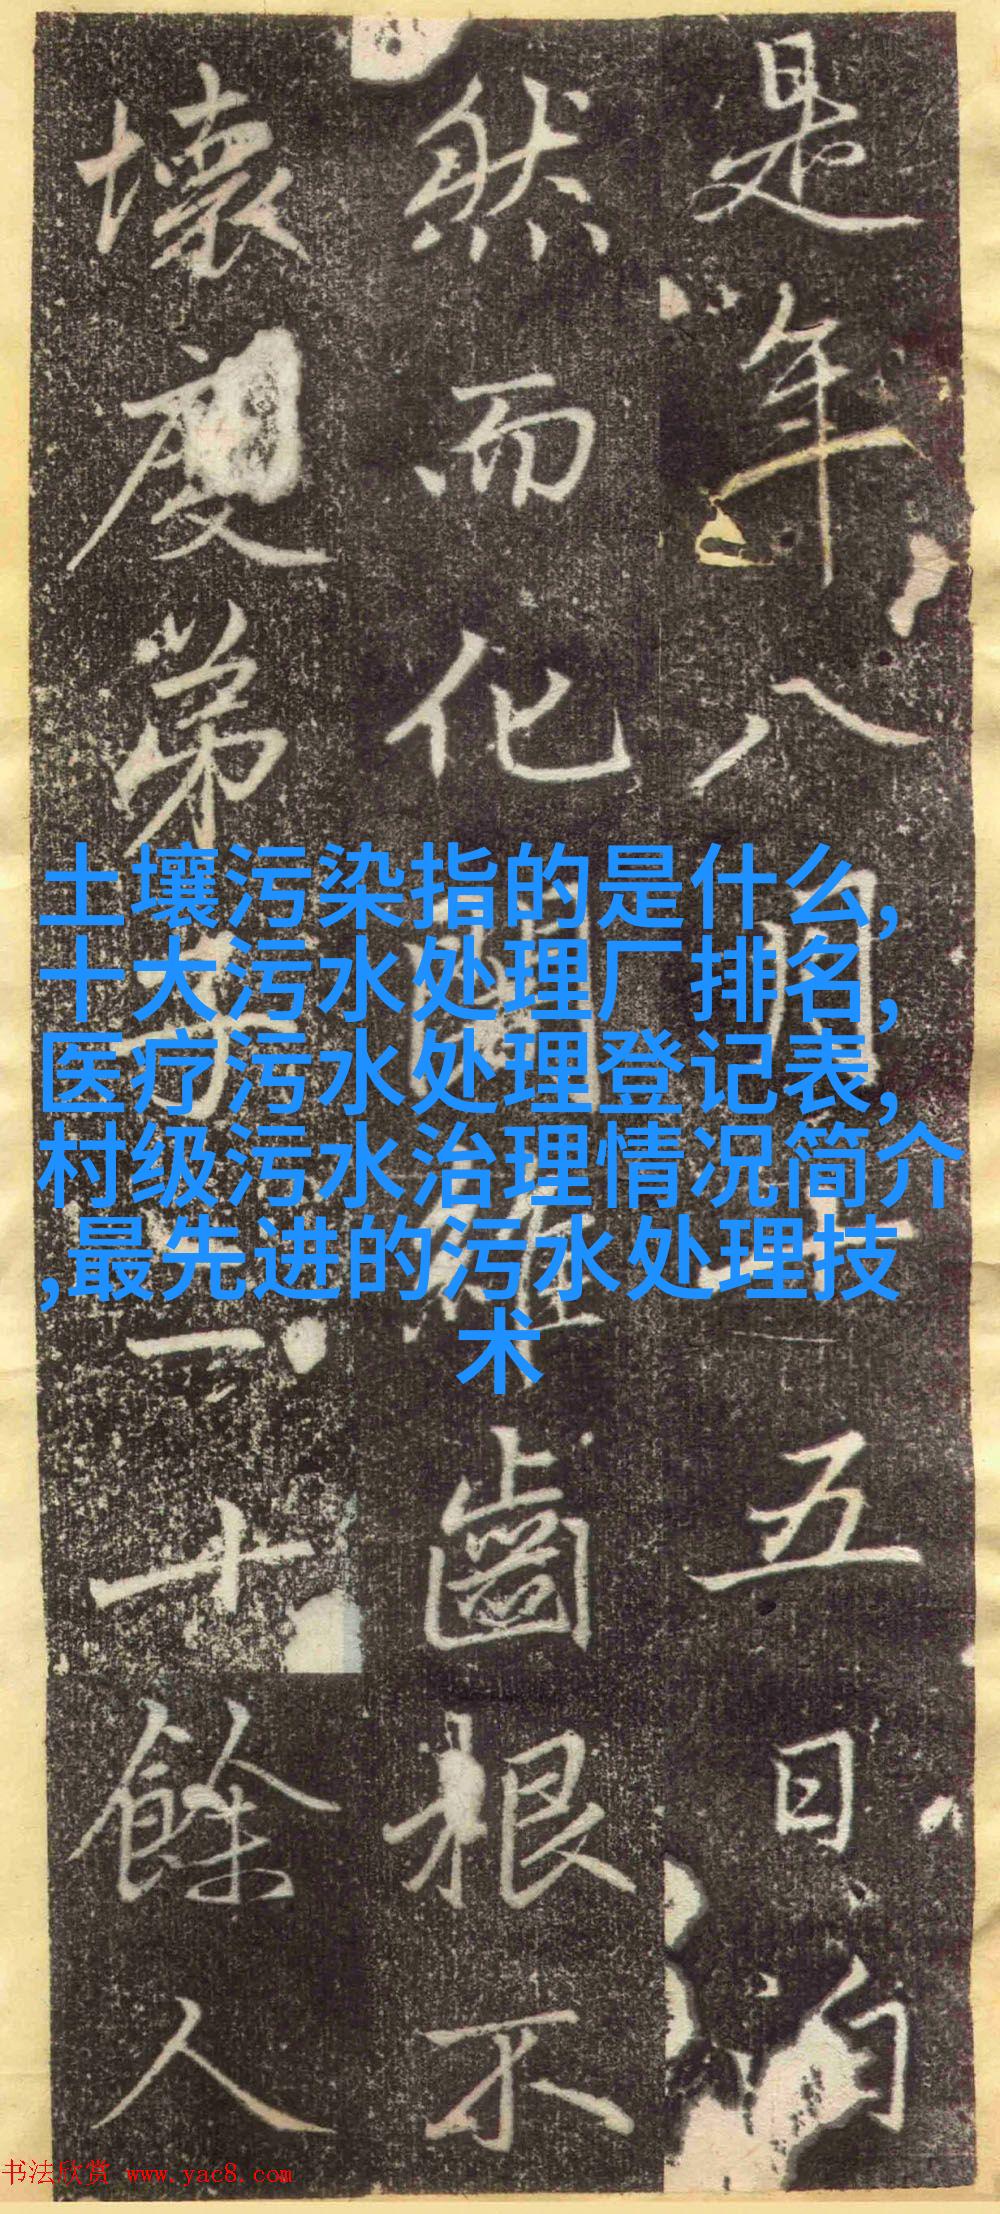 是年八月十五日自
然而化闍維齒根不
壞慶弟子一十餘人
土壤污染指的是什么,
十大污水处理厂排名,
医疗污水处理登记表,
村级污水治理情况简介
,最先进的污水处理技
术
书法欣赏 www.yac8.com